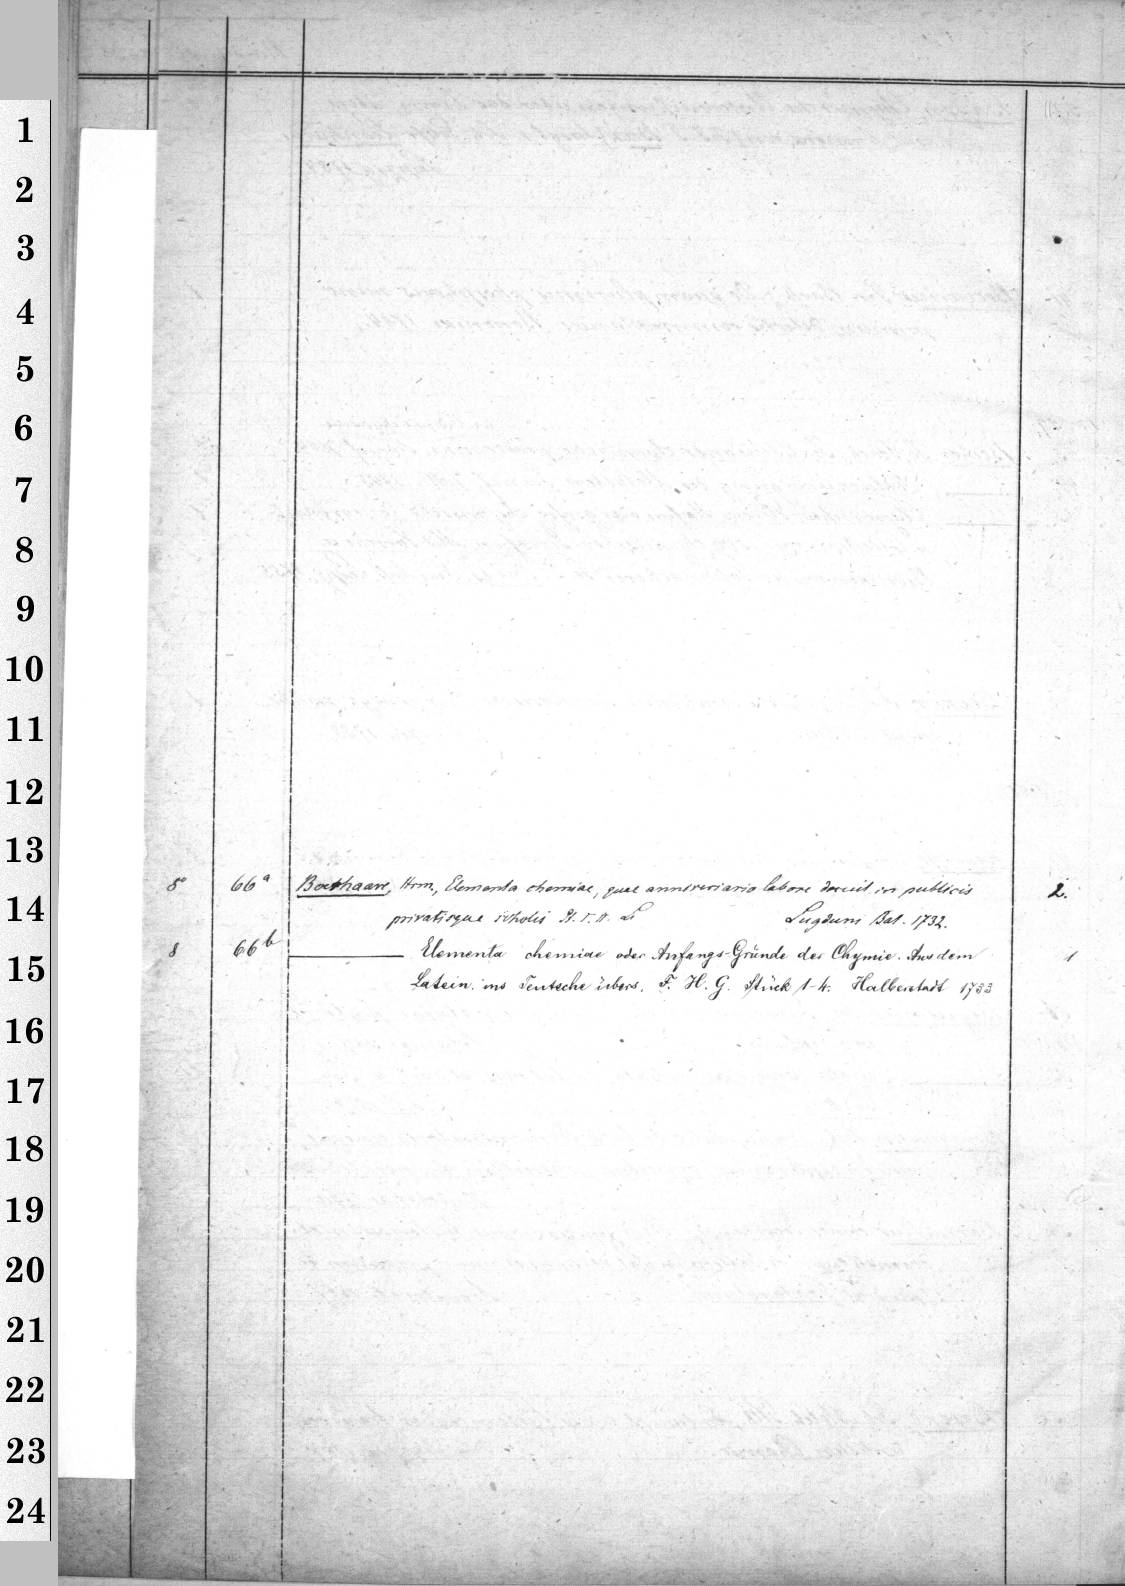 1
2
3
4
5
6
7
8
9
10
11
12
13
8° 66a Boerhaave, Herm., Elementa chemiae, quae anniversario labore docuit in publicis 2.
14
privatisque scholis Lugduni Bat. 1732.
8 66b ——— Elementa chemiae oder Anfangs-Gründe der Chymie. Aus dem 1
15
Latein. ins Teutsche übers. F. H. G. Stück 1-4. Halberstadt 1733
16
17
18
19
20
21
22
23
24